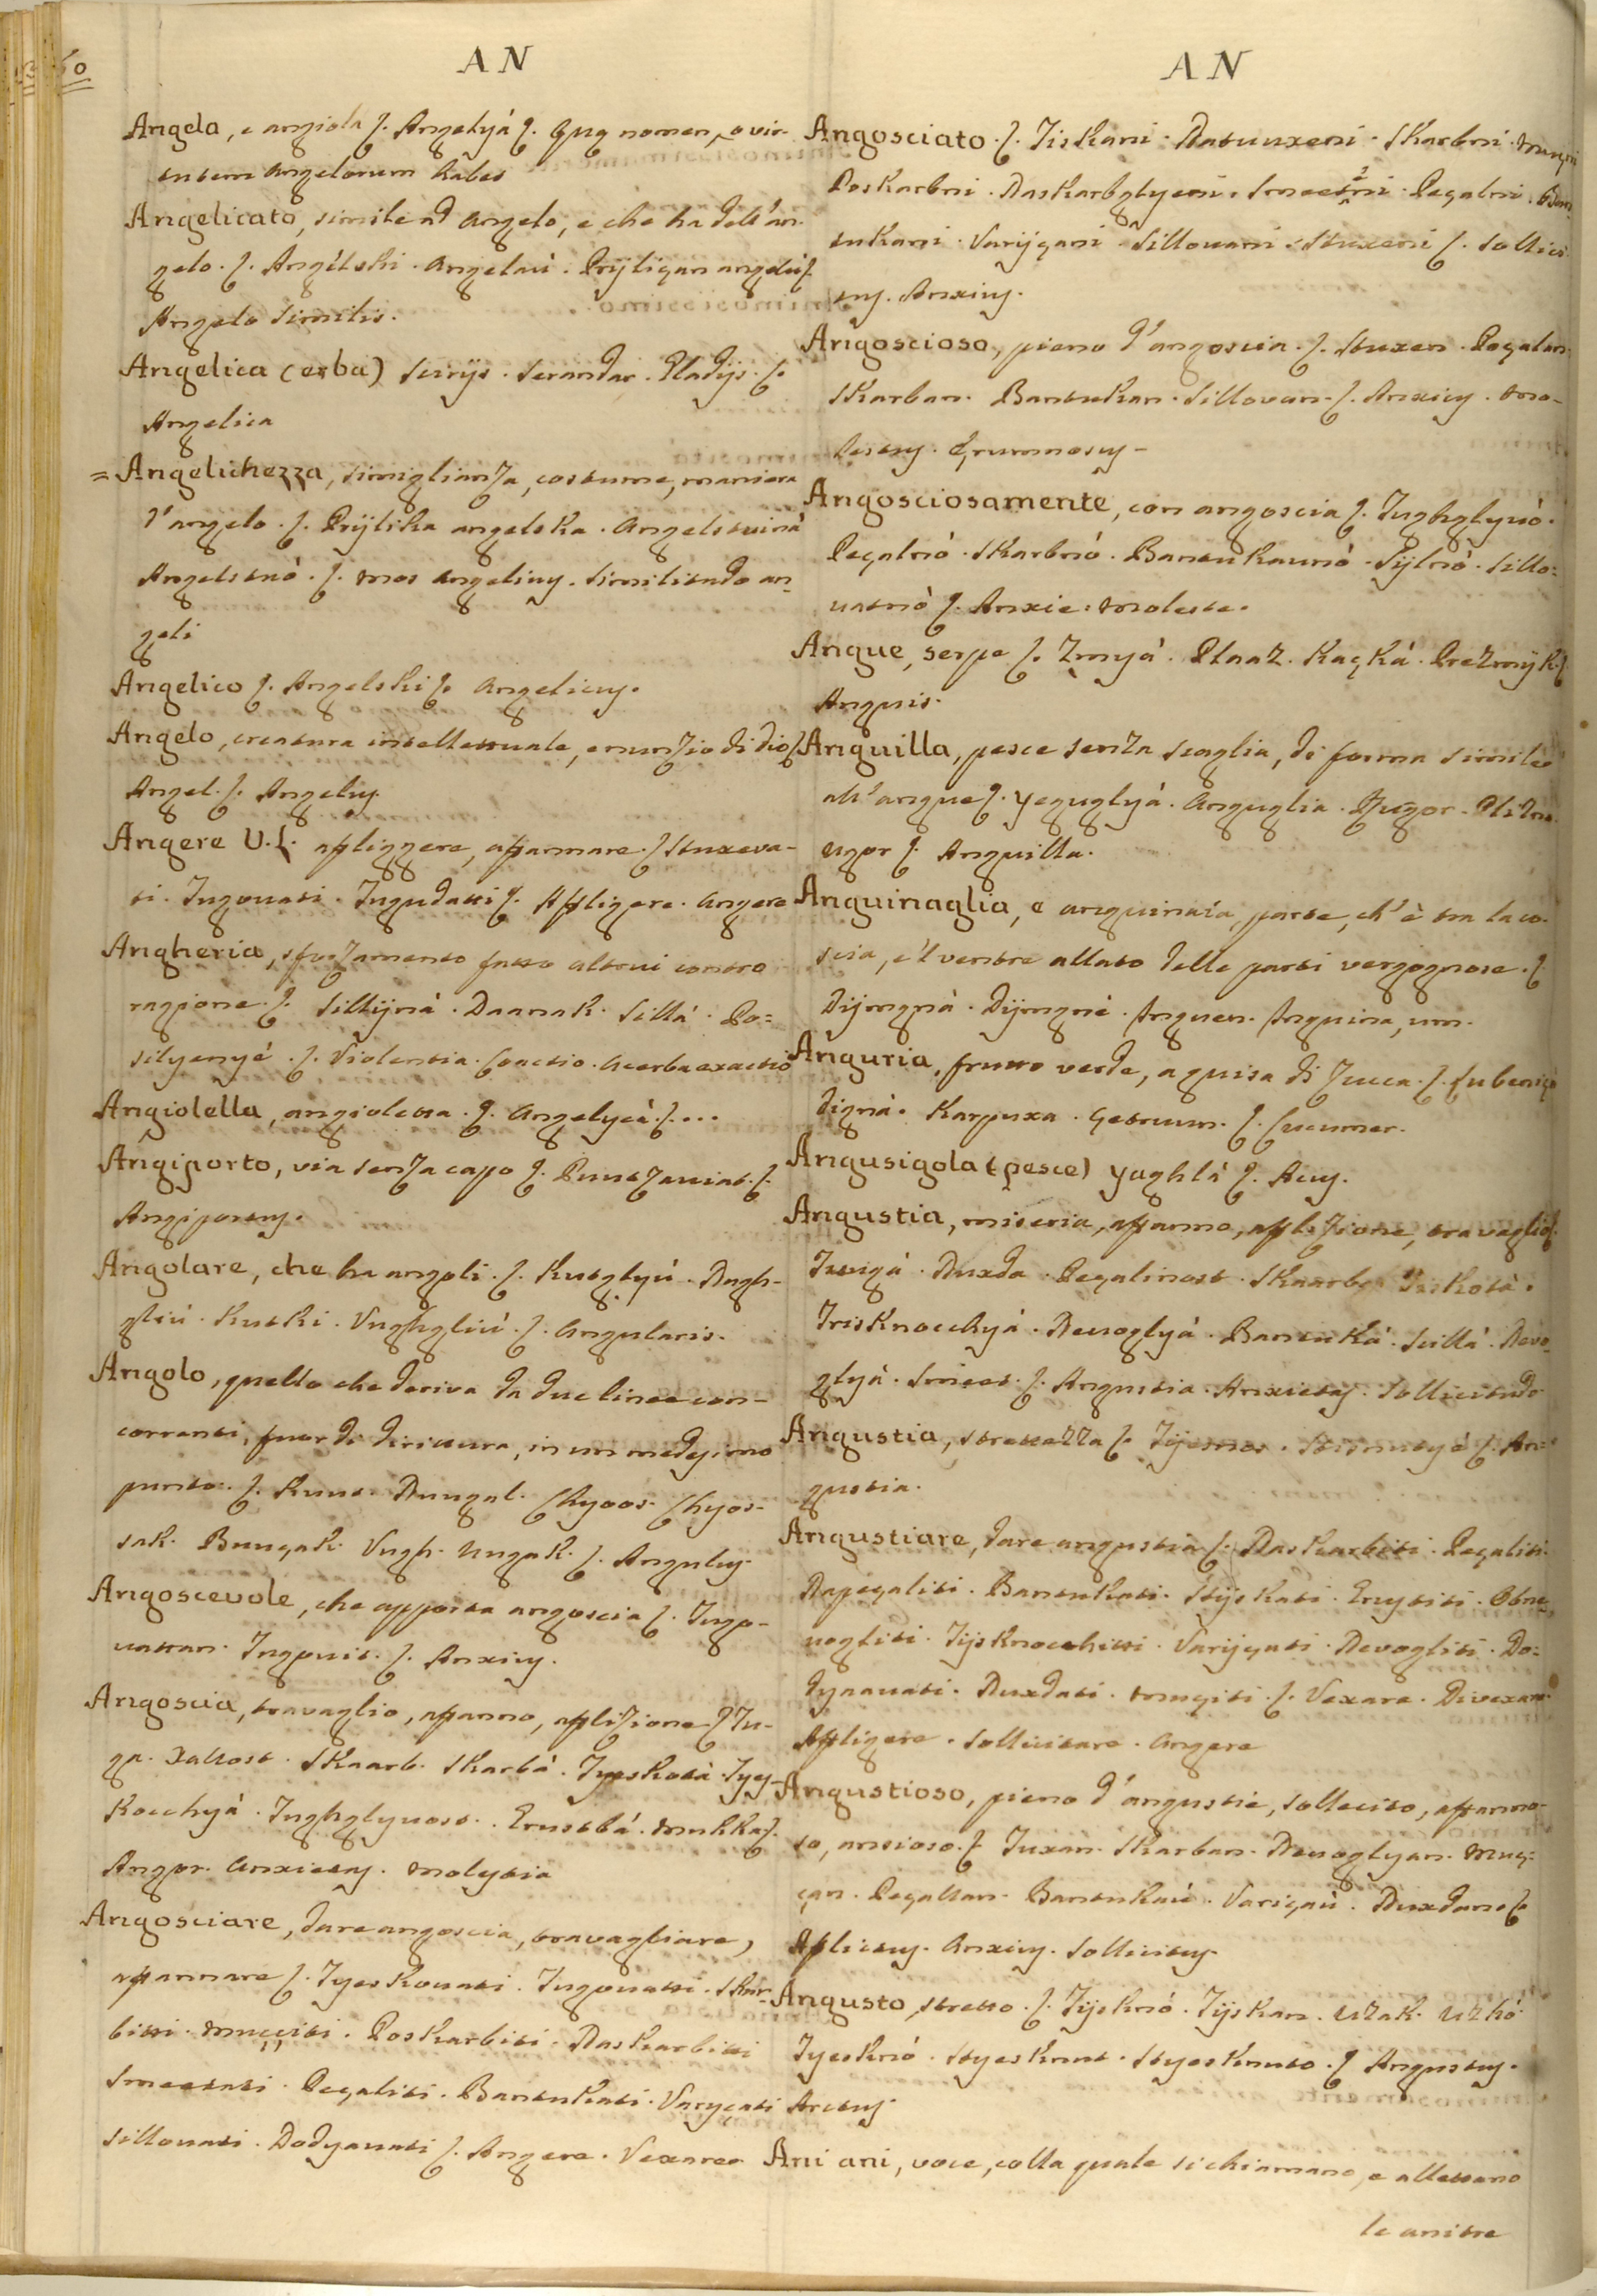 60
AN
Angela, e angiola ſ. Angelyá ſ. Quę nomen, o vir-
tutem angelorum habet
Angelicato, simile ad angelo, e che ha dell'an-
gelo. ſ. Angélski. Angelaú. Prÿliçan angelú ſ.
Angelo similis.
Angelica (erba) Sirÿs. Serandar. Pladÿs. ſ.
Angelica
= Angelichezza, simiglianza, costume, maniera
d'angelo. ſ. Prÿlika angelska. Angelstuiná
Angelstuó. ſ. mos angelicus. Similitudo an-
geli
Angelico ſ. Angelski ſ. Angelicus.
Angelo, creatura intellettuale, e nunzio di Dio ſ.
Angel. ſ. Angelus.
Angere V.L. affliggere, affannare. ſ. Stuxeva-
ti. Tugouati. Tugudatti ſ. Affligere. Angere
Angheria, sforzamento fatto altrui contro
ragione. ſ. Sillÿná. Daanak. Sillá. Po=
silyenyé. ſ. Violentia. Coactio. Acerba exactio
Angiolella, angioletta. ſ. Angelyçá. ſ...
Angiporto, via senza capo ſ. Puutzauiat. ſ.
Angiportus.
Angolare, che ha angoli. ſ. Kutglyú. Dugh-
gliú. Kutki. Vughgliú. ſ. Angularis.
Angolo, quello che deriva da due linee con-
correnti, fuor di dirittura, in un medesimo
punto. ſ. Kuut. Duugal. Chyoos. Chyos-
sak. Buuçak. Vugh. Uugak. ſ. Angulus.
Angoscevole, che apporta angoscia ſ. Tugo-
uattan. Tugouit. ſ. Anxius.
Angoscia, travaglio, affanno, afflizione ſ. Tu-
ga. Xallost. Skaarb. Skarbá. Tyeskotá. Tyes-
kocchyá. Tughglyuost. Erustbá. Mukka ſ.
Angor. Anxietas. Molestia
Angosciare, dare angoscia, travagliare,
affannare ſ. Tyeskouati. Tugouatti. Skar-
bitti. Muççiti. Poskarbiti. Daskarbitti
Smeetati. Peçaliti. Bantukati. Varyçati
Sillouati. Dodyauati ſ. Angere. Vexare.
AN
Angosciato. ſ. Tiskani. Dastuuxeni. Skarbni.
Poskarbni. Daskarbglyeni. Smeetni. Peçalni.
tukani. Varÿçani. Sillouani. Stuxeni ſ. Sollici
tus. Anxius.
Angoscioso, pieno d'angoscia. ſ. Stuxen. Peçalan.
Skarban. Bantukan. Sillovan. ſ. Anxius. mo-
lestus. Ęrumnosus-
Angosciosamente, con angoscia ſ. Tughglyuó.
Peçalnó. Skarbnó. Bantukaunó. Sÿlnó. Sillo=
uatnó ſ. Anxie. Moleste.
Angue, serpe ſ. Zmyá. Plaaz. Kaçká. Prezmÿk. ſ.
Anguis.
Anguilla, pesce senza scaglia, di forma simile
all'angue ſ. Yeguglyá. Anguglia. Ugor.
ugor ſ. Anguilla.
Anguinaglia, e anguinaia, parte, ch'è tra la co-
scia, e'l ventre allato delle parti vergognose. ſ.
Dÿmgná. Dÿmgné. Inguen. Inguina, um.
Anguria, frutto verde, a guisa di Zucca. ſ. Lubeniça
Digná. Karpuxa. Getruum. ſ. Cucumer.
Angusigola (pesce) Yaghlá ſ. Acus.
Angustia, miseria, affanno, afflizione, travaglio ſ.
Tuugá. Duxda. Peçalinost. Skaarb. Tiskotá.
Trisknocchyá. Nevoglyá. Bantuká. Scillá. Nevo-
glyá. Smeet. ſ. Angustia. Anxietas. Sollicitudo
Angustia, strettezza ſ. Tÿesnos. Stisnutyé ſ. An=
gustia.
Angustiare, dare angustia ſ. Daskarbiti. Peçaliti.
Dapeçaliti. Bantukati. Stÿskati. Erustiti. Obne-
uogliti. Tÿsknocchitti. Varÿçati. Nevogliti. Do=
dyaauati. Duxdati. Muçiti. ſ. Vexare. Divexare.
Affligere. Sollicitare. Angere
Angustioso, pieno d'angustie, sollecito, affanno-
so, ansioso. ſ. Tuxan. Skarban. Nevoglyan. Muç=
çan. Peçallan. Bantukaú. Variçaú. Duxdan. ſ.
Aflictus. Anxius. Sollicitus.
Angusto, stretto. ſ. Tÿsknó. Tÿskan. Uzak. Uzkó
Tyesknó. Styesknut. Styesknuto. ſ. Angustus.
Arctus.
Ani ani, voce, colla quale si chiamano, e allettano
le anitre